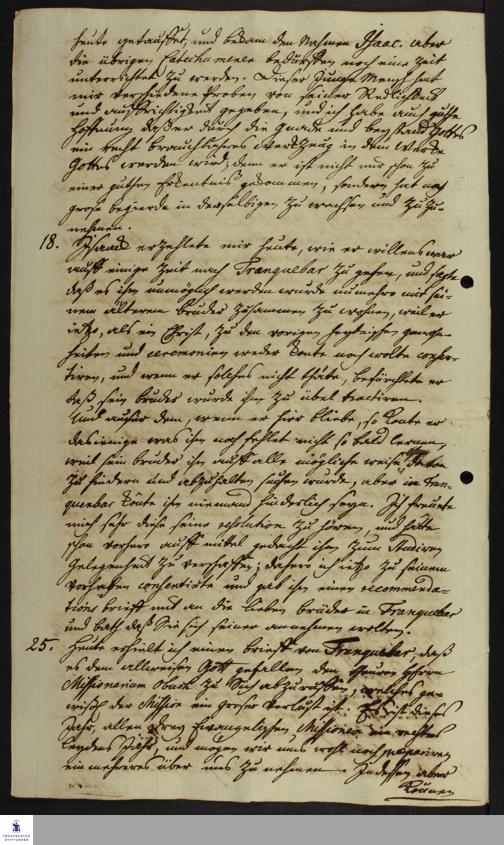 heute getauffet, und bekam den Nahmen Isaac. aber
die übrigen Catechumeni bedürffen noch eine Zeit
unterrichtet zu werden. Dieser Junge Mensch hat
mir verschiedene Proben von seiner Redlichkeit
und auffrichtigkeit gegeben, und ich habe auch gute
Hoffnung daß er durch die Gnade und beystand Gottes
ein recht brauchbahres Werckzeug in dem Wercke
Gottes werden wird, denn er ist nicht nur schon zu
einer guthen Erkentnis gekommen, sondern hat noch
grose begierde in derselbigen zu wachsen und zuzu-
nehmen.
18. Isaac erzehlete mir heute, wie er willens wär
auff einige Zeit nach Tranquebar zu gehen, und sagte
daß es ihm unmöglich werden würde nunmehro mit sei-
nem älteren bruder zusammen zu wohnen, weil er
ietzo, als ein Christ, zu den vorigen heydnischen gewohn-
heiten und ceremonien weder könte noch wolte consen-
tiren, und wenn er solches nicht thäte, befürchtete er
daß sein bruder würde ihn zu übel tractiren.
Und auser dem, wenn er hier bliebe, so könte er
dasienige was ihm noch fehlet nicht so bald lernen,
weil sein bruder ihn auff alle mögliche weise
zu hindern und abzuhalten suchen würde, aber in Tran-
quebar könte ihm niemand hinderlich seyn. Ich freuete
mich sehr diese seine resolution zu hören, und hatte
schon vorher auff mittel gedacht ihm zum Studiren
Gelegenheit zu verschaffen; dahero ich ietzo zu seinem
vorhaben consentirte und gab ihm einen recommenda-
tions brieff mit an die lieben brüder in Tranquebar
und bath daß Sie sich seiner annehmen wolten.
25. Heute erhielt ich einen brieff von Tranquebar, daß
es dem allweisen Gott gefallen den theuren Herrn
Missionarium Obuch zu Sich abzuruffen, welches ge-
wißl. der Mission ein groser Verlust ist. Es ist dieses
Jahr, allen drey Evangelischen Missionen ein rechtes
leydens Jahr, und mögen wir uns wohl noch praepariren
ein mehreres über uns zu nehmen. Indessen aber
können
FRANCKESCHE
STIFTUNGEN